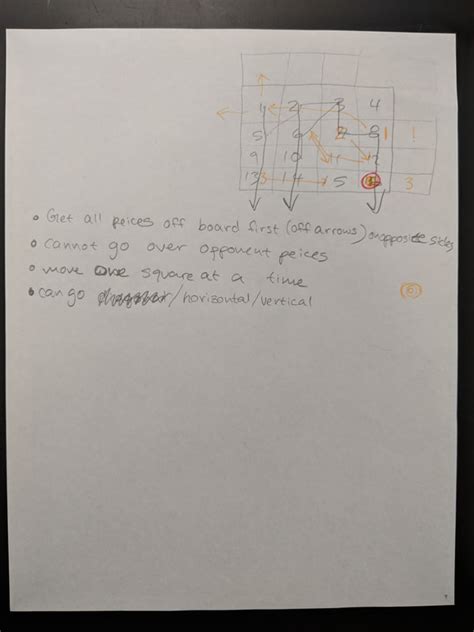 1 2 3 4
5 6 7 8 1 !
9 10 11 12
13 3 14 15 3
• Get all peices off board first (off arrows) on opposite sides
• cannot go over opponent peices
• move one square at a time
• can go /horizontal/vertical
6